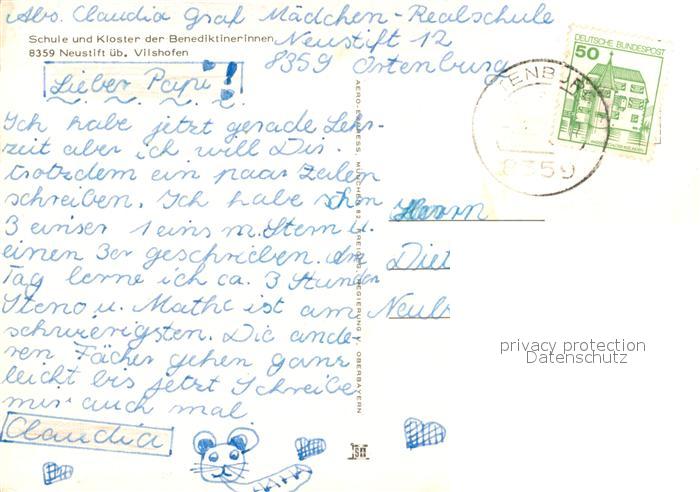 Abs. Claudia Graf Mädchen-Realschule
Neustift 12
8359 Ortenburg
Schule und Kloster der Benediktinerinnen
8359 Neustift üb. Vilshofen
Lieber Papi!
Ich habe jetzt gerade Lern-
zeit aber ich will Dir
trotzdem ein paar Zeilen
schreiben. Ich habe schon
3 einser 1 eins m. Stern u.
einen 3er geschrieben. Am
Tag lerne ich ca. 3 Stunden
Steno u. Mathe ist am
schwierigsten. Die ande-
ren Fächer gehen ganz
leicht bis jetzt Schreibe
mir auch mal
Claudia
AERO-EXPRESS, MÜNCHEN 82, FREIGEG. REGIERUNG V. OBERBAYERN
DEUTSCHE BUNDESPOST
50
8359
Herrn
Diet
Neub
privacy protection
Datenschutz